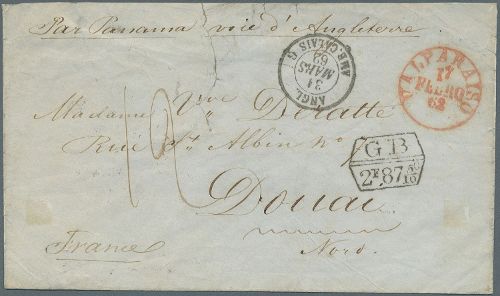 Par Panama voie d'Angleterre
ANGL.
31
MARS
62
AMB. CALAIS G
VALPARAISO
17
FEBRO
62
Madame Vve Deratte
Rue St Albin no
12
GB
2F 87 56/10
Douai
Nord.
France